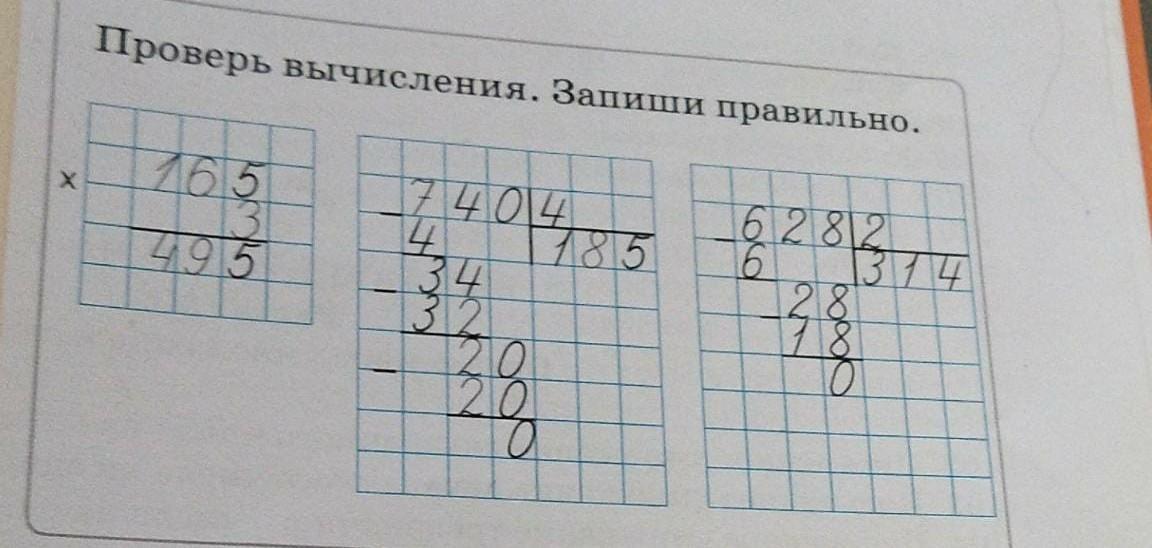 Проверь вычисления. Запиши правильно.
x 165
3
495
- 740 4
4 185
- 34
32
- 20
20
0
- 628 2
6 314
- 28
18
0